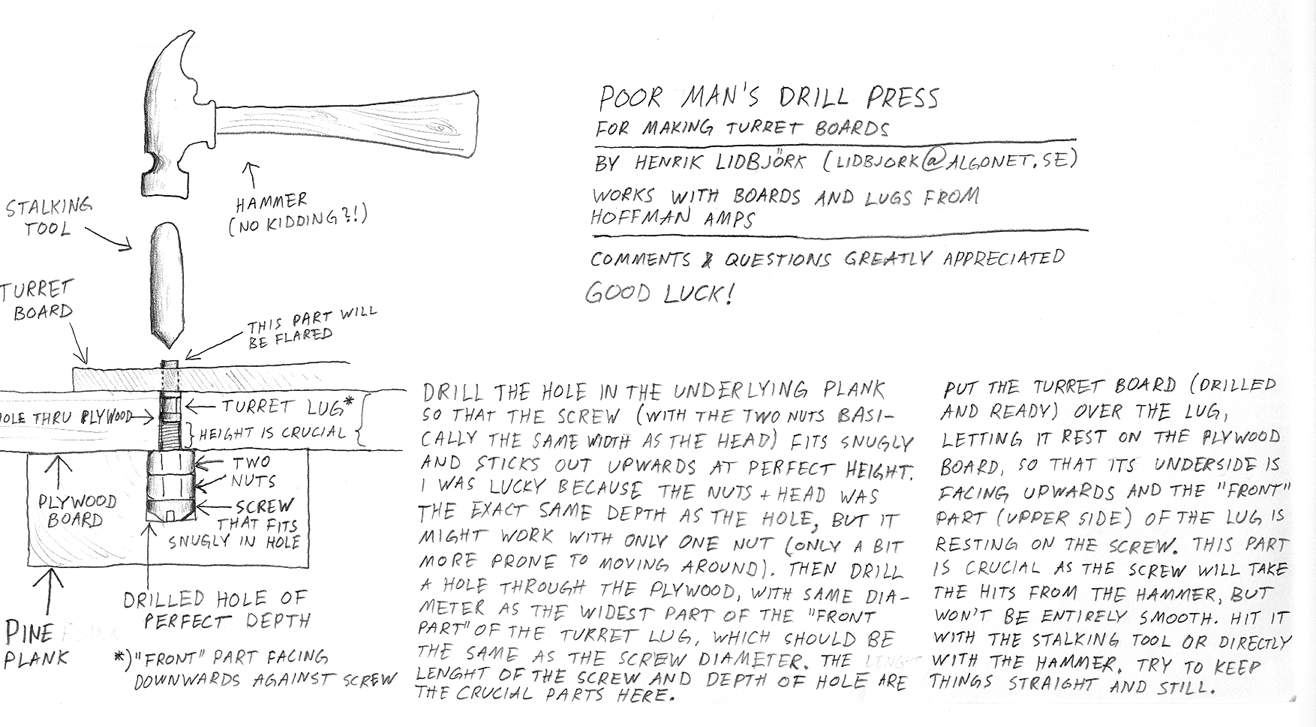 POOR MAN'S DRILL PRESS
FOR MAKING TURRET BOARDS
BY HENRIK LIDBJÖRK (LIDBJORK@ALGONET.SE)
WORKS WITH BOARDS AND LUGS FROM
HOFFMAN AMPS
COMMENTS & QUESTIONS GREATLY APPRECIATED
GOOD LUCK!
HAMMER
(NO KIDDING?!)
STALKING
TOOL
TURRET
BOARD
THIS PART WILL
BE FLARED
HOLE THRU PLYWOOD
TURRET LUG*
HEIGHT IS CRUCIAL
TWO
NUTS
PLYWOOD
BOARD
SCREW
THAT FITS
SNUGLY IN HOLE
DRILLED HOLE OF
PERFECT DEPTH
PINE
PLANK
*) "FRONT" PART FACING
DOWNWARDS AGAINST SCREW
DRILL THE HOLE IN THE UNDERLYING PLANK
SO THAT THE SCREW (WITH THE TWO NUTS BASI-
CALLY THE SAME WIDTH AS THE HEAD) FITS SNUGLY
AND STICKS OUT UPWARDS AT PERFECT HEIGHT.
I WAS LUCKY BECAUSE THE NUTS + HEAD WAS
THE EXACT SAME DEPTH AS THE HOLE, BUT IT
MIGHT WORK WITH ONLY ONE NUT (ONLY A BIT
MORE PRONE TO MOVING AROUND). THEN DRILL
A HOLE THROUGH THE PLYWOOD, WITH SAME DIA-
METER AS THE WIDEST PART OF THE "FRONT
PART" OF THE TURRET LUG, WHICH SHOULD BE
THE SAME AS THE SCREW DIAMETER. THE
LENGHT OF THE SCREW AND DEPTH OF HOLE ARE
THE CRUCIAL PARTS HERE.
PUT THE TURRET BOARD (DRILLED
AND READY) OVER THE LUG,
LETTING IT REST ON THE PLYWOOD
BOARD, SO THAT ITS UNDERSIDE IS
FACING UPWARDS AND THE "FRONT"
PART (UPPER SIDE) OF THE LUG IS
RESTING ON THE SCREW. THIS PART
IS CRUCIAL AS THE SCREW WILL TAKE
THE HITS FROM THE HAMMER, BUT
WON'T BE ENTIRELY SMOOTH. HIT IT
WITH THE STALKING TOOL OR DIRECTLY
WITH THE HAMMER. TRY TO KEEP
THINGS STRAIGHT AND STILL.